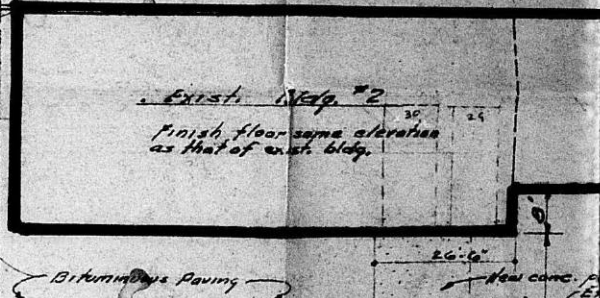 Exist. Bldg. #2
30
29
Finish floor same elevation
as that of exist. bldg.
26'-6"
Bituminous Paving
New conc.